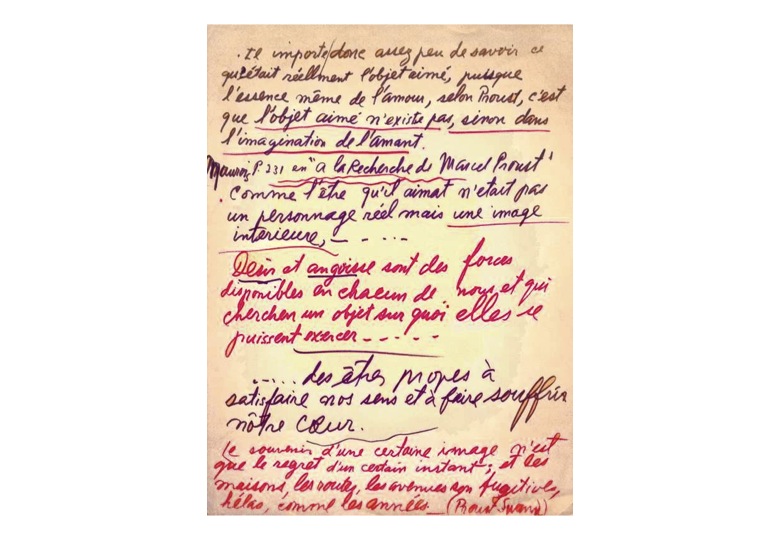 . Il importe donc assez peu de savoir ce
qu'était réellment l'objet aimé, puisque
l'essence même de l'amour, selon Proust, c'est
que l'objet aimé n'existe pas, sinon dans
l'imagination de l'amant.
Maurois P. 231 en "a la Recherche de Marcel Proust"
. Comme l'être qu'il aimat n'était pas
un personnage réel mais une image
interieure, — - . . .
Desir et angoisse sont des forces
disponibles en chacun de nous et qui
cherchen un objet sur quoi elles se
puissent exercer - - - - -
- . . . . des êtres propes à
satisfaire nos sens et à faire souffrir
nôtre cœur.
Le souvenir d'une certaine image n'est
que le regret d'un certain instant; et les
maisons, les routes, les avenues son fugitives,
hélas, comme les années. _ (Proust. Swann)